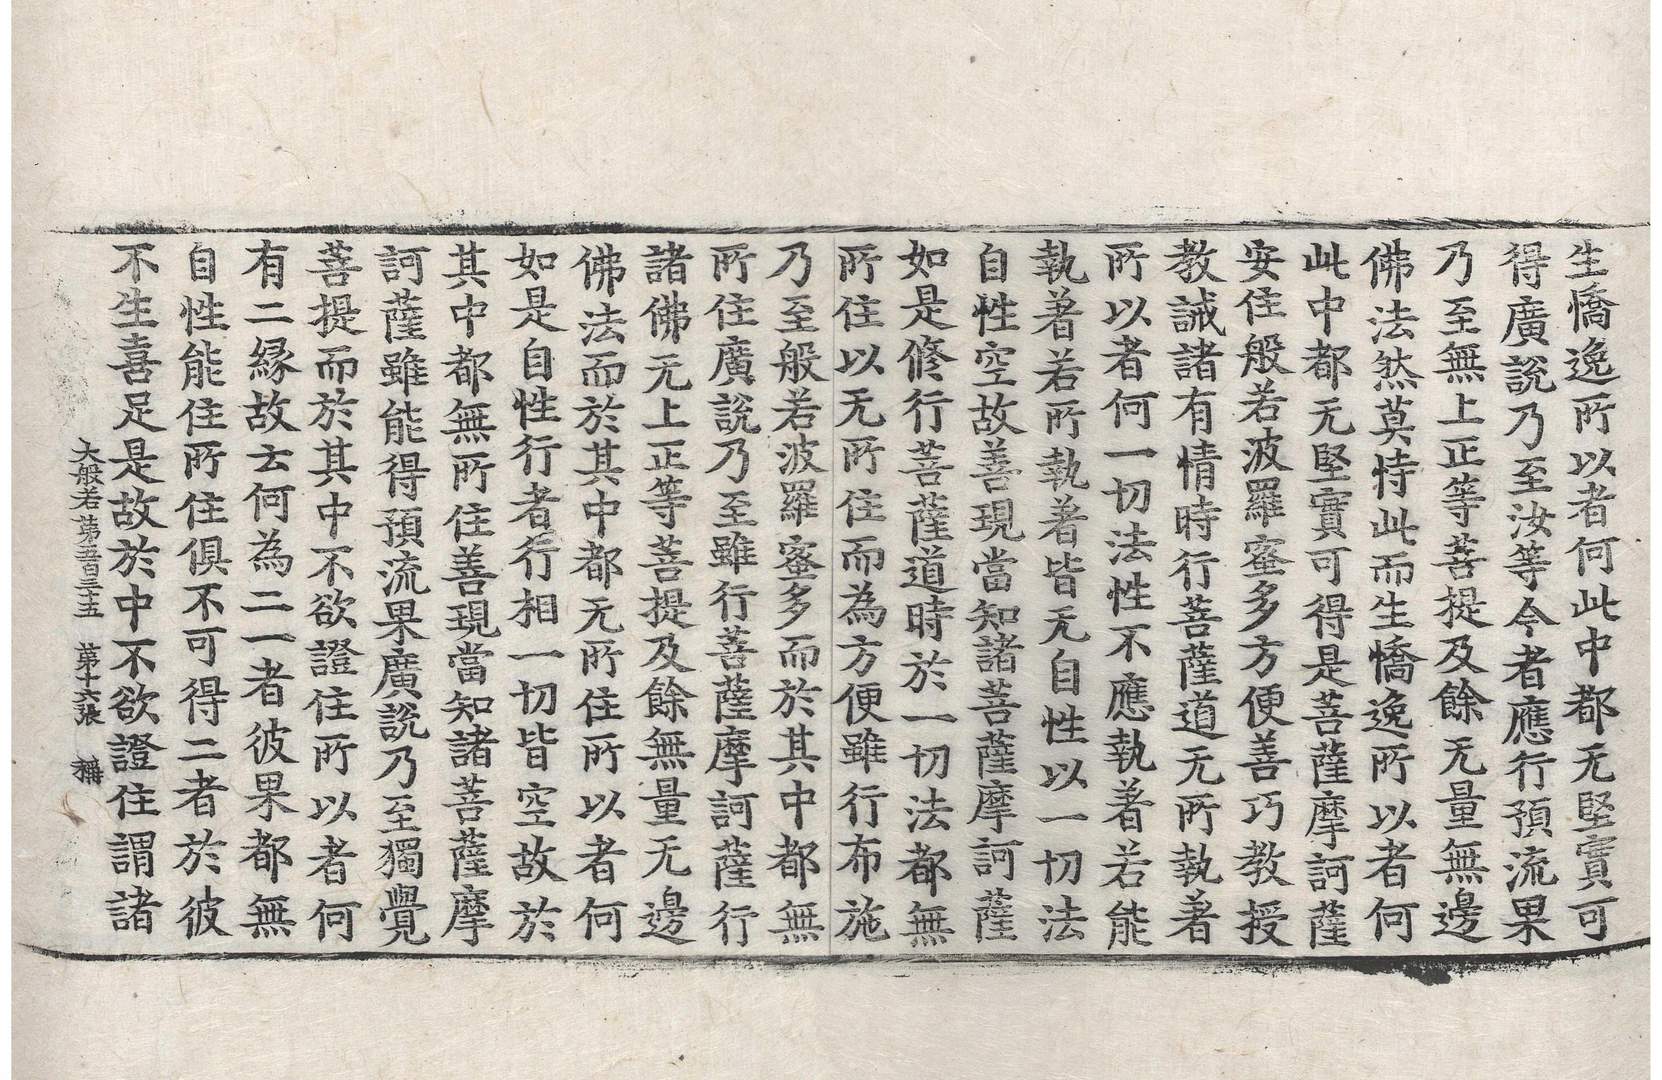 生憍逸所以者何此中都无堅實可
得廣說乃至汝等今者應行預流果
乃至無上正等菩提及餘无量無邊
佛法然莫恃此而生憍逸所以者何
此中都无堅實可得是菩薩摩訶薩
安住般若波羅蜜多方便善巧教授
教誡諸有情時行菩薩道无所執著
所以者何一切法性不應執著若能
執著若所執著皆无自性以一切法
自性空故善現當知諸菩薩摩訶薩
如是修行菩薩道時於一切法都無
所住以无所住而為方便雖行布施
乃至般若波羅蜜多而於其中都無
所住廣說乃至雖行菩薩摩訶薩行
諸佛无上正等菩提及餘無量无邊
佛法而於其中都无所住所以者何
如是自性行者行相一切皆空故於
其中都無所住善現當知諸菩薩摩
訶薩雖能得預流果廣說乃至獨覺
菩提而於其中不欲證住所以者何
有二緣故云何為二一者彼果都無
自性能住所住俱不可得二者於彼
不生喜足是故於中不欲證住謂諸
大般若第五百三十五 第十六張 稱